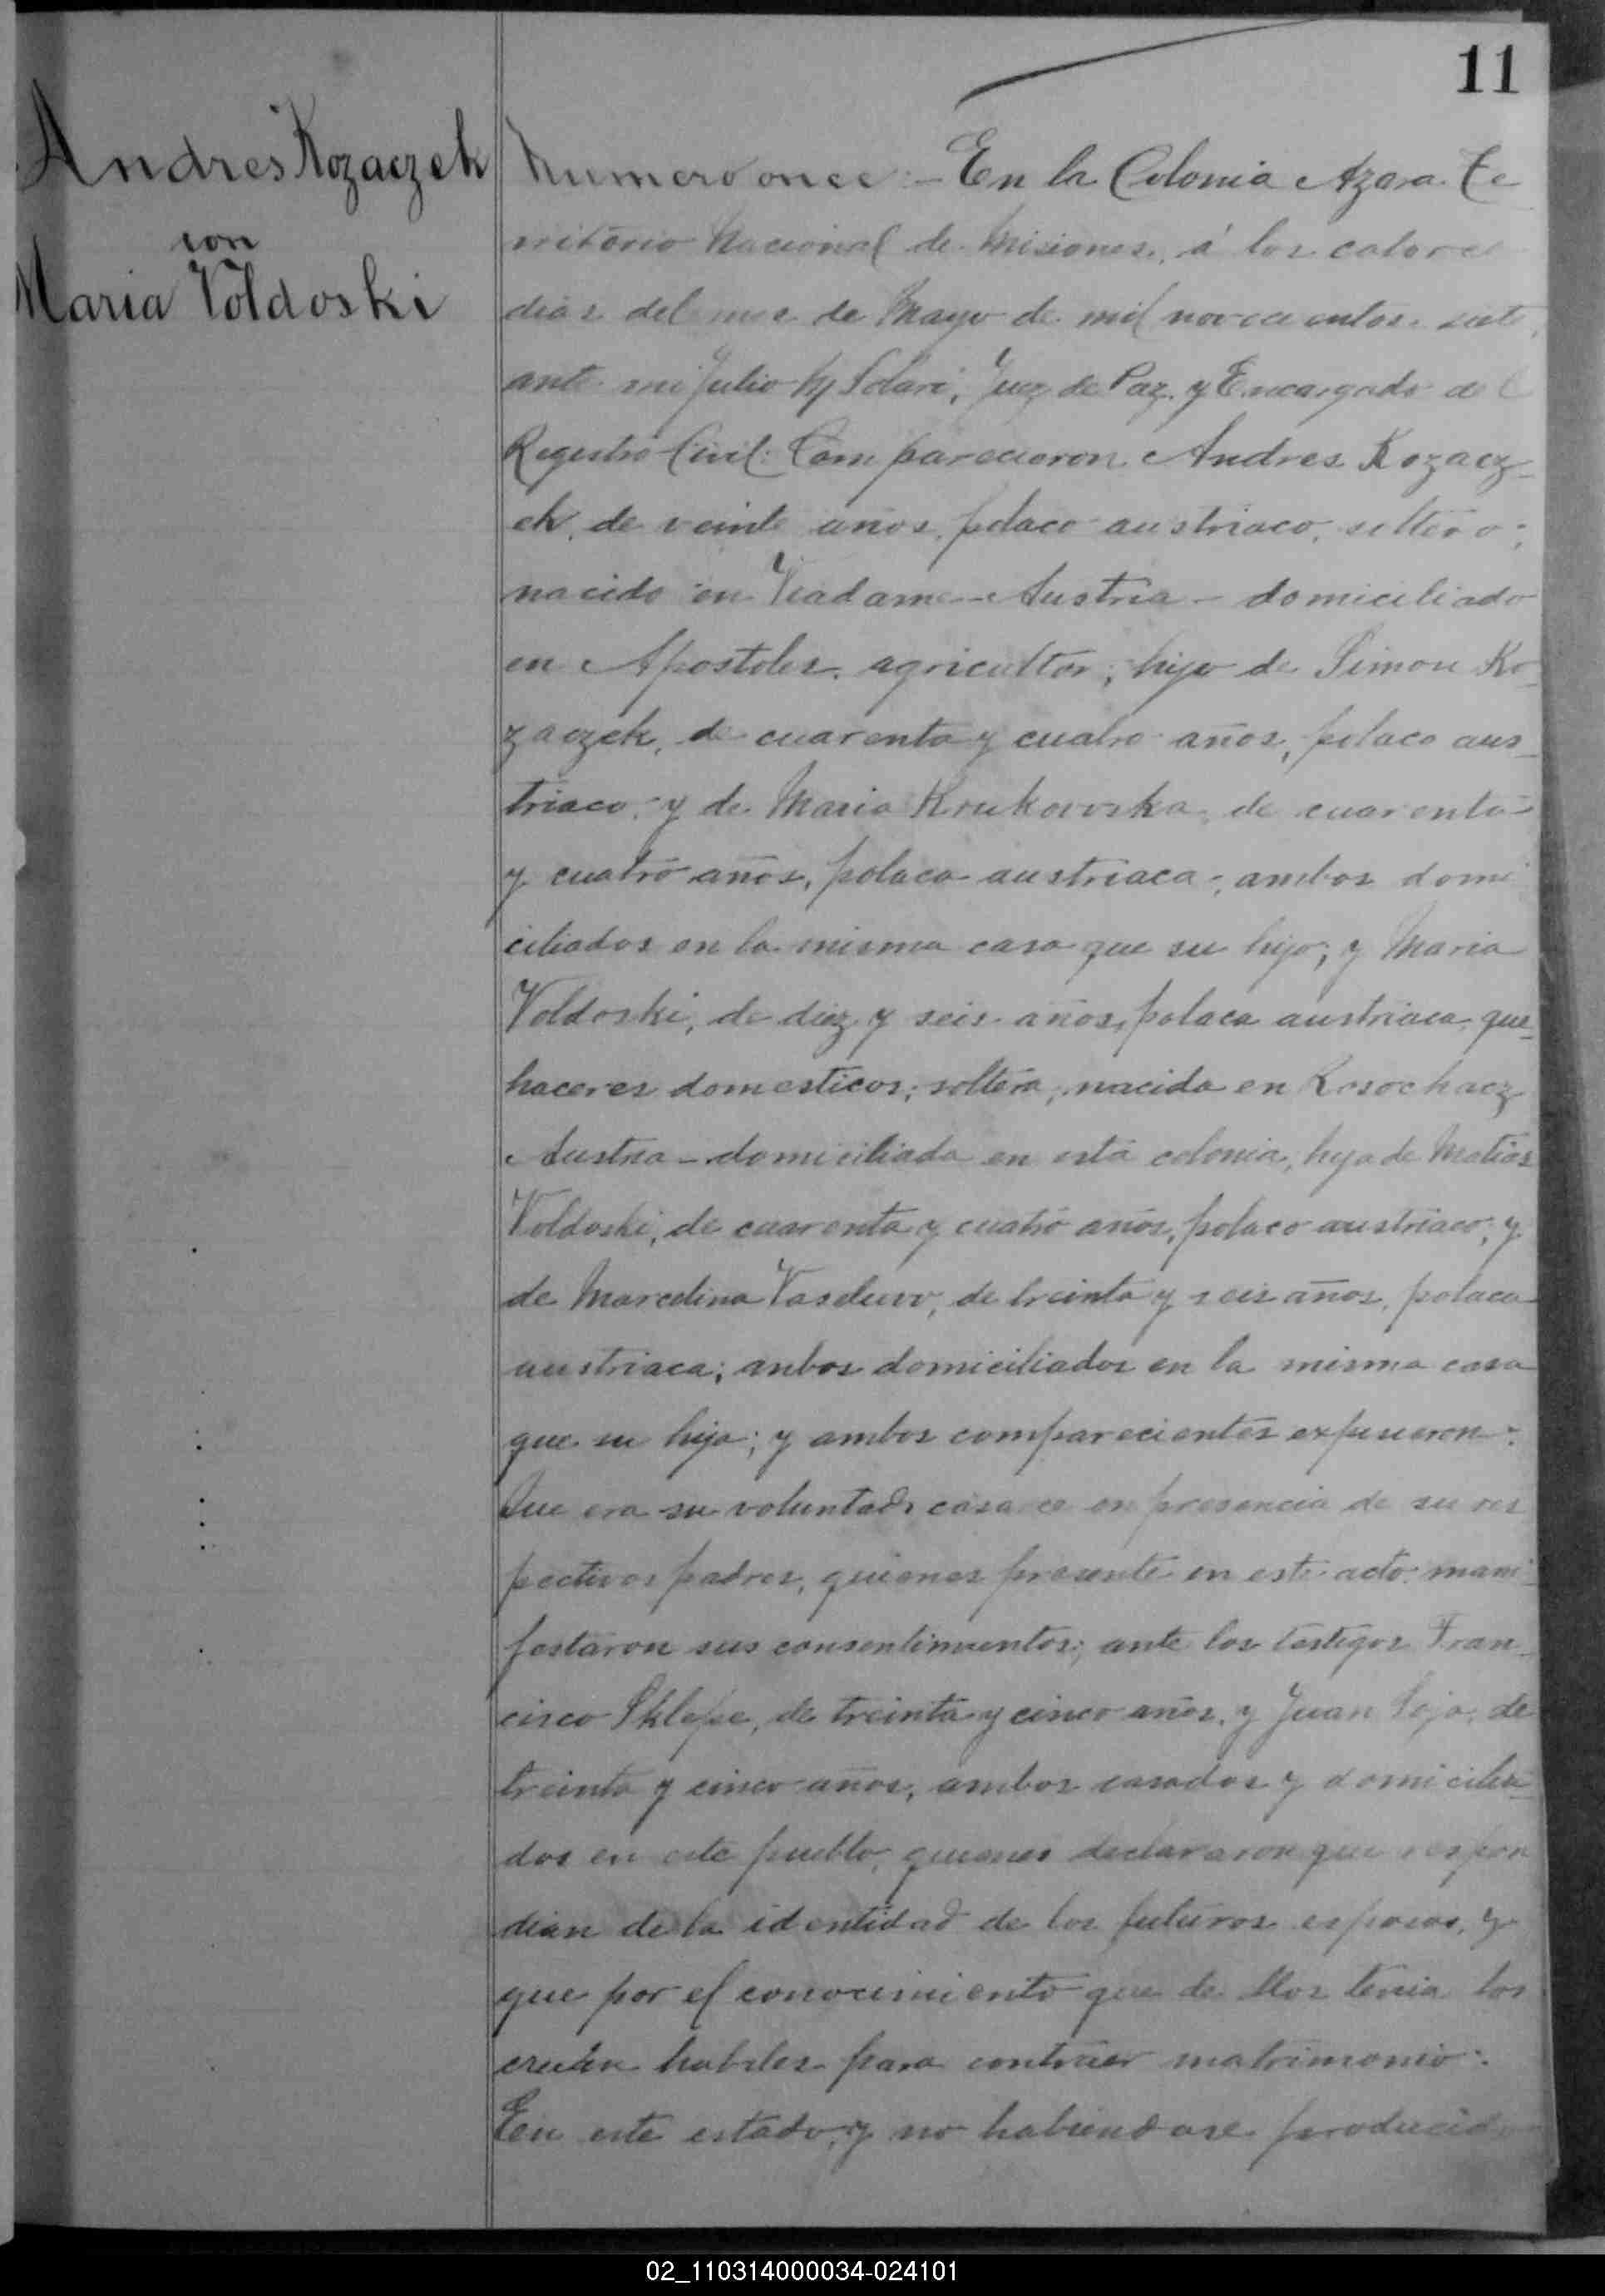 11
Andres Kozaczek
con
Maria Voldoski
Numero once:- En la Colonia Azara Te-
rritorio Nacional de Misiones, á los catorce
dias del mes de Mayo de mil novecientos siete,
ante mi Julio M Solari, Juez de Paz y Encargado del
Registro Civil: Comparecieron Andres Kozacz-
ek, de veinte años, polaco austriaco, soltero;
nacido en Austria - domiciliado
en Apostoles, agricultor; hijo de Simon Ko-
zaczek, de cuarenta y cuatro años, polaco aus-
triaco; y de Maria Krukovska, de cuarenta
y cuatro años, polaca austriaca; ambos domi
ciliados en la misma casa que su hijo; y Maria
Voldoski, de diez y seis años, polaca austriaca, que-
haceres domesticos; soltera; nacida en Kosochacz
Austria - domiciliada en esta colonia, hija de Matias
Voldoski, de cuarenta y cuatro años, polaco austriaco; y
de Marcelina de treinta y seis años, polaca
austriaca; anbos domiciliados en la misma casa
que su hija; y ambos comparecientes expusieron:
Que era su voluntad casarce en presencia de su res
pectivos padres, quienes presente en este acto mani-
festaron sus consentimientos; ante los testigos Fran-
cisco Sklepe, de treinta y cinco años, y Juan Soja, de
treinta y cinco años, ambos casados y domicilia-
dos en este pueblo, quienes declararon que respon
dian de la identidad de los futuros esposos, y
que por el conocimiento que de llos tenia los
creian habiles para contraer matrimonio:
Een este estado, y no habiendose producido
02_110314000034-024101